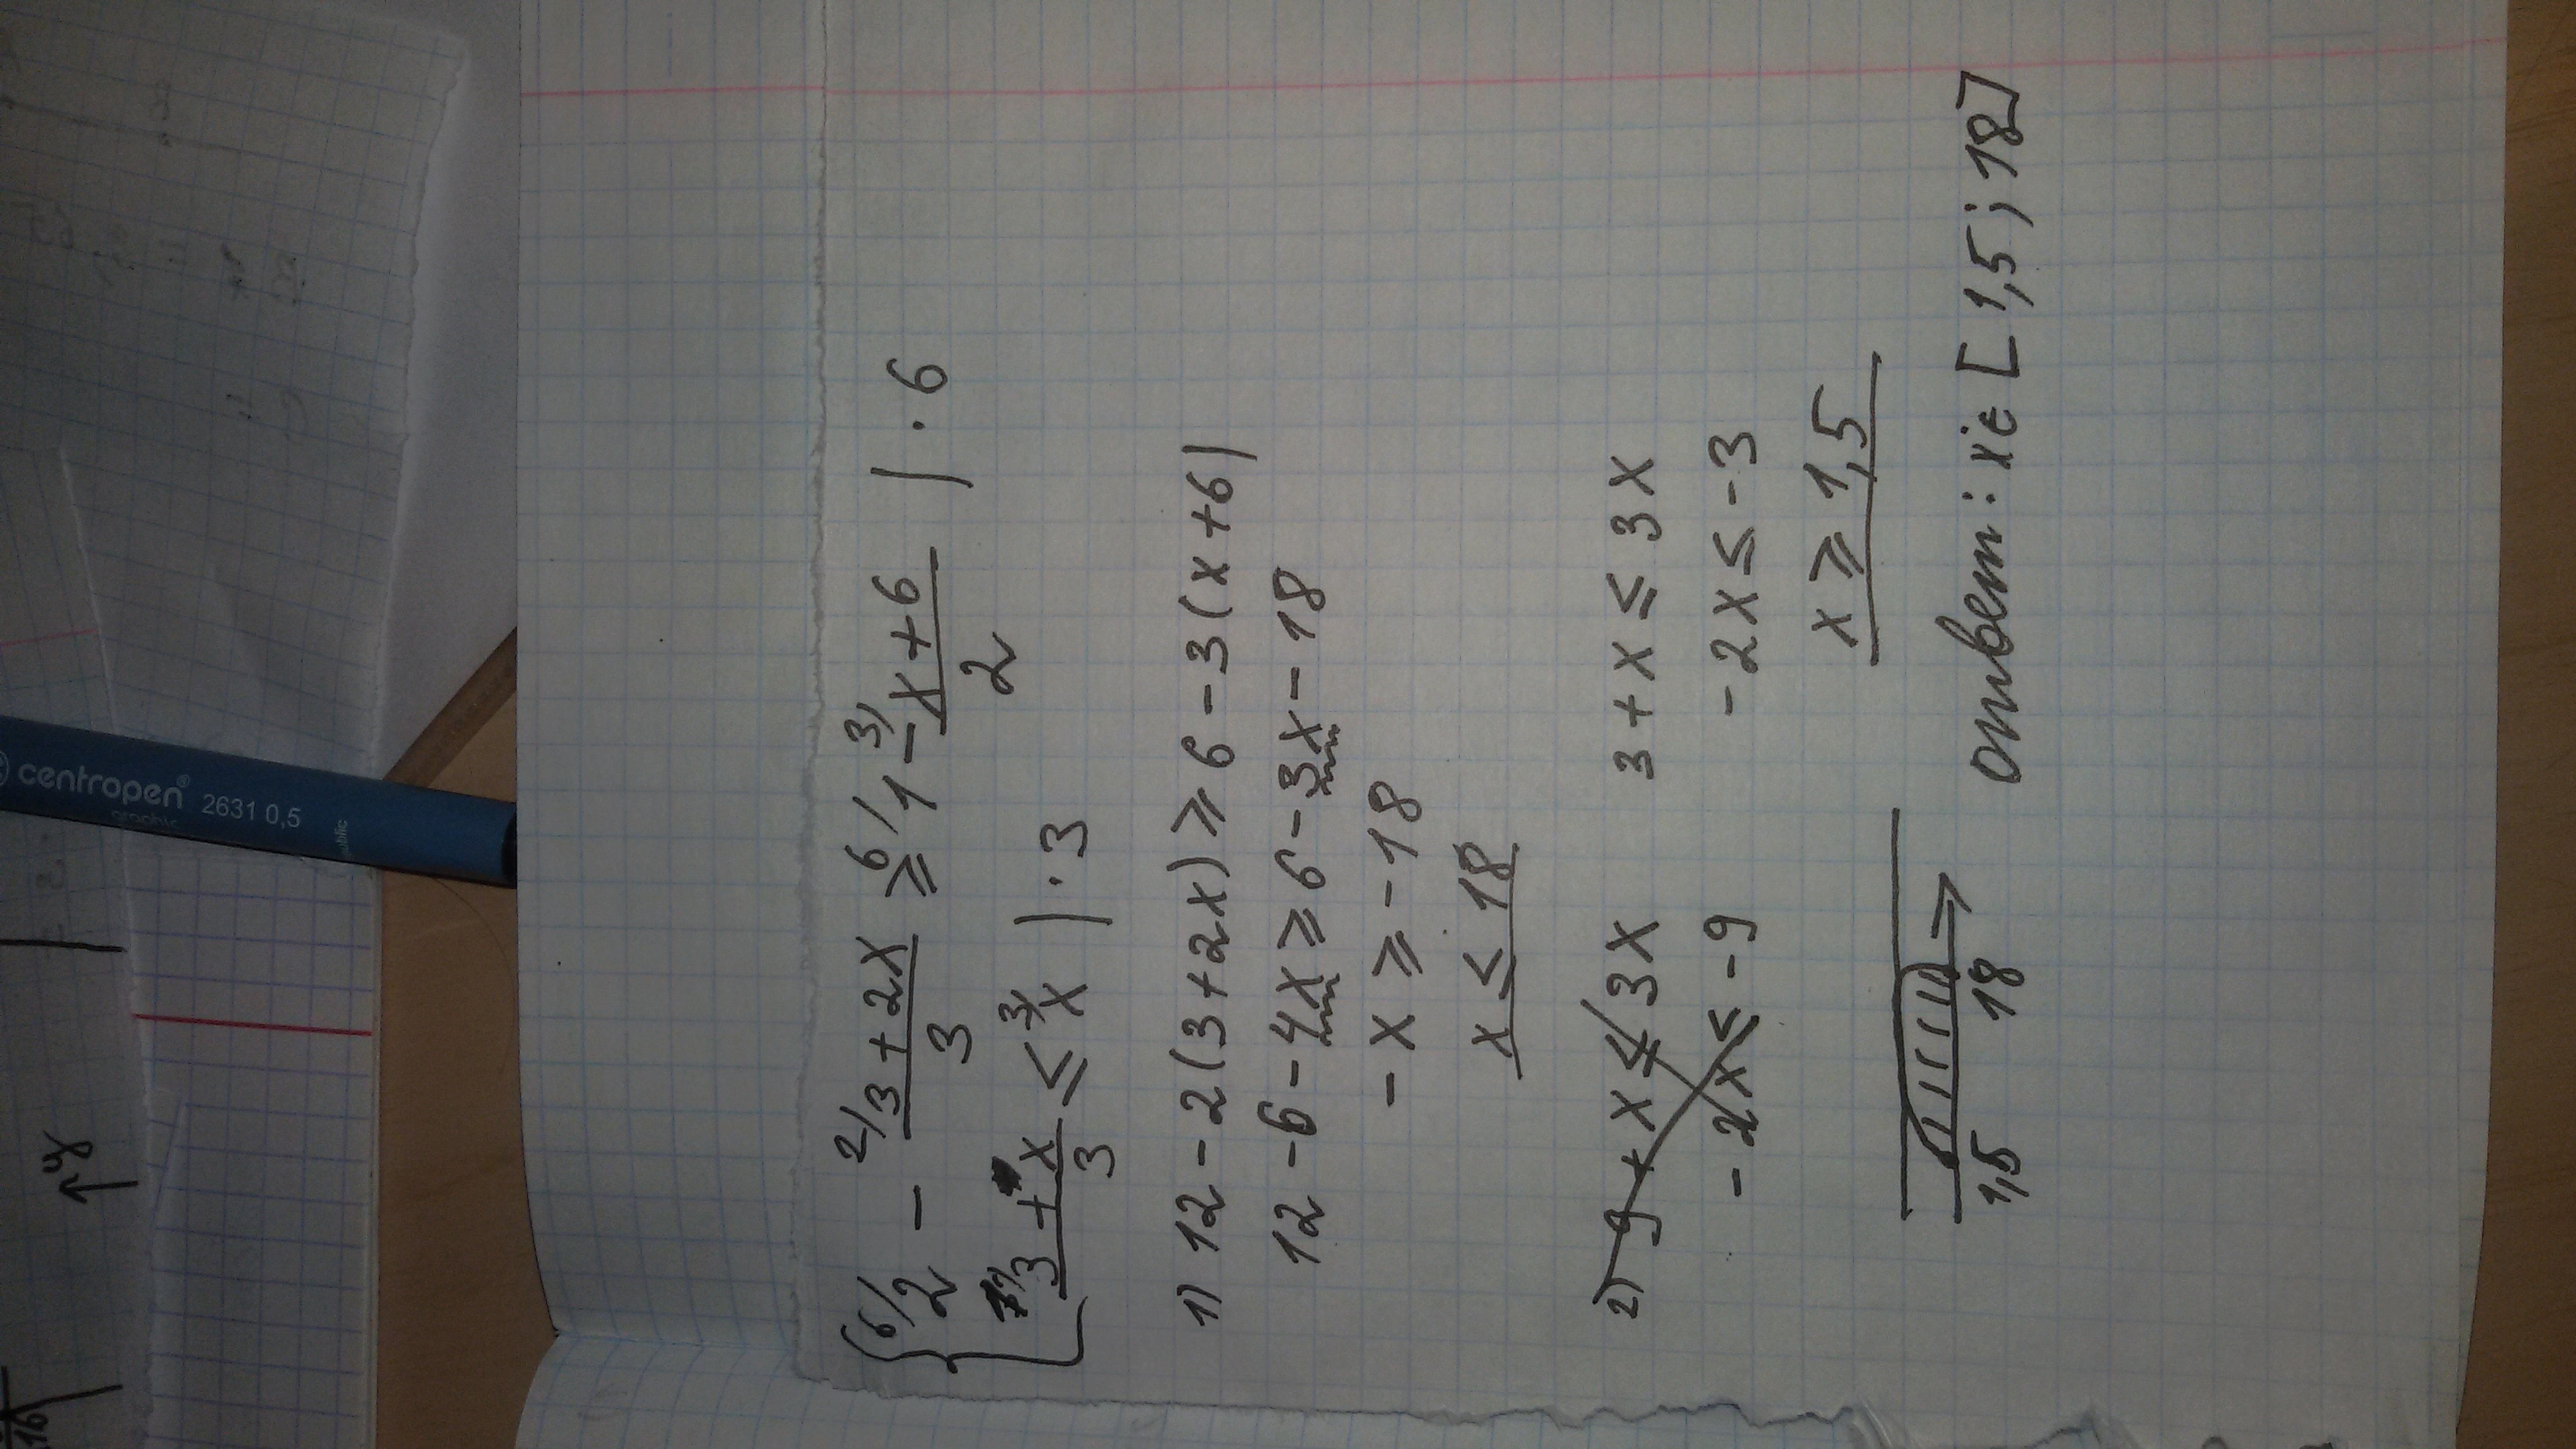 { 6/ 2 - 2/ 3+2x / 3 ≥ 6/ 1 - 3/ x+6 / 2 | · 6
3+x / 3 ≤ 3/ x | · 3
1) 12-2(3+2x) ≥ 6-3(x+6)
12-6-4x ≥ 6-3x-18
-x ≥ -18
x ≤ 18
2) 9+x ≤ 3x 3+x ≤ 3x
-2x ≤ -9 -2x ≤ -3
x ≥ 1,5
1,5 18
Ответ: xє [1,5; 18]
centropen® 2631 0,5
graphic
y
16